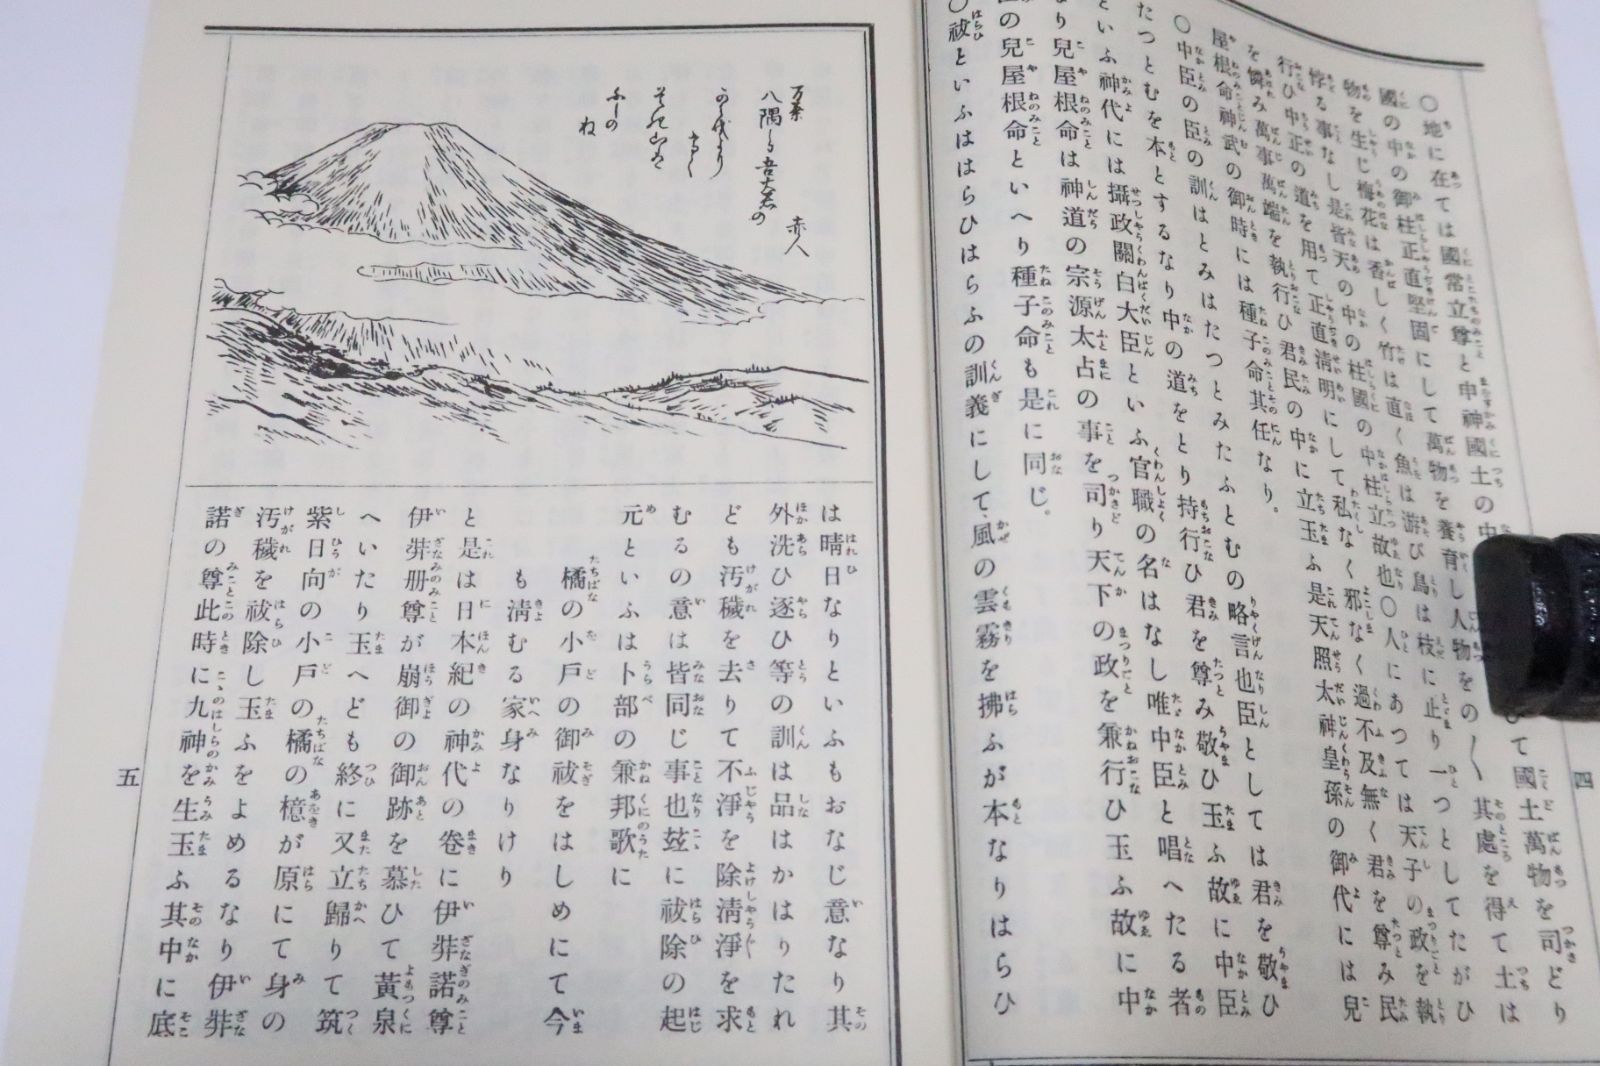 ひて國土萬物を司どり
〇地に在ては國常立尊と申神國土の中
其處を得て土は
國の中の御柱正直堅固にして萬物を養育し人物をの〱
物を生じ梅花は香しく竹は直く魚は游び鳥は枝に止り一つとしてたがひ
悖る事なし是皆天の中の柱國の中柱立故也〇人にあつては天子の政を執
行ひ中正の道を用て正直淸明にして私なく邪なく過不及無く君を尊み民
を憐み萬事萬端を執行ひ君民の中に立玉ふ是天照太神皇孫の御代には兒
屋根命神武の御時には種子命其任なり。
〇中臣の臣の訓はとみはたつとみたふとむの略言也臣としては君を敬ひ
たつとむを本とするなり中の道をとり持行ひ君を尊み敬ひ玉ふ故に中臣
といふ神代には攝政關白大臣といふ官職の名はなし唯中臣と唱へたる者
なり兒屋根命は神道の宗源太占の事を司り天下の政を兼行ひ玉ふ故に中
臣の兒屋根命といへり種子命も是に同じ。
〇祓といふははらひはらふの訓義にして、風の雲霧を拂ふが本なりはらひ
四
万葉
赤人
八隅しる吾大君の
ふしの
ね
は晴日なりといふもおなじ意なり其
外洗ひ逐ひ等の訓は品はかはりたれ
ども汚穢を去りて不淨を除淸淨を求
むるの意は皆同じ事也玆に祓除の起
元といふは卜部の兼邦歌に
橘の小戸の御祓をはしめにて今
も淸むる家身なりけり
と是は日本紀の神代の卷に伊弉諾尊
伊弉册尊が崩御の御跡を慕ひて黃泉
へいたり玉へども終に又立歸りて筑
紫日向の小戸の橘の檍が原にて身の
汚穢を祓除し玉ふをよめるなり伊弉
諾の尊此時に九神を生玉ふ其中に底
五